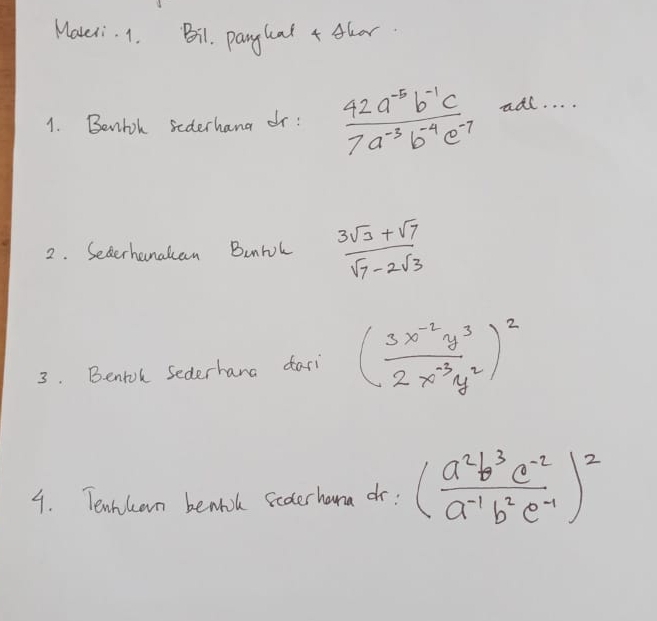 Materi . 1. Bil. pangkat & Akar .
1. Bentuk sederhana dr : \frac{42 a^{-5} b^{-1} c}{7 a^{-3} b^{-4} c^{-7}} adl ....
2. Sederhanakan Bentuk \frac{3√3 + √7}{√7 - 2√3}
3. Bentuk Sederhana dari (\frac{3 x^{-2} y^3}{2 x^{-3} y^2})^2
4. Tentukan bentuk sederhana dr : (\frac{a^2 b^3 c^{-2}}{a^{-1} b^2 c^{-1}})^2